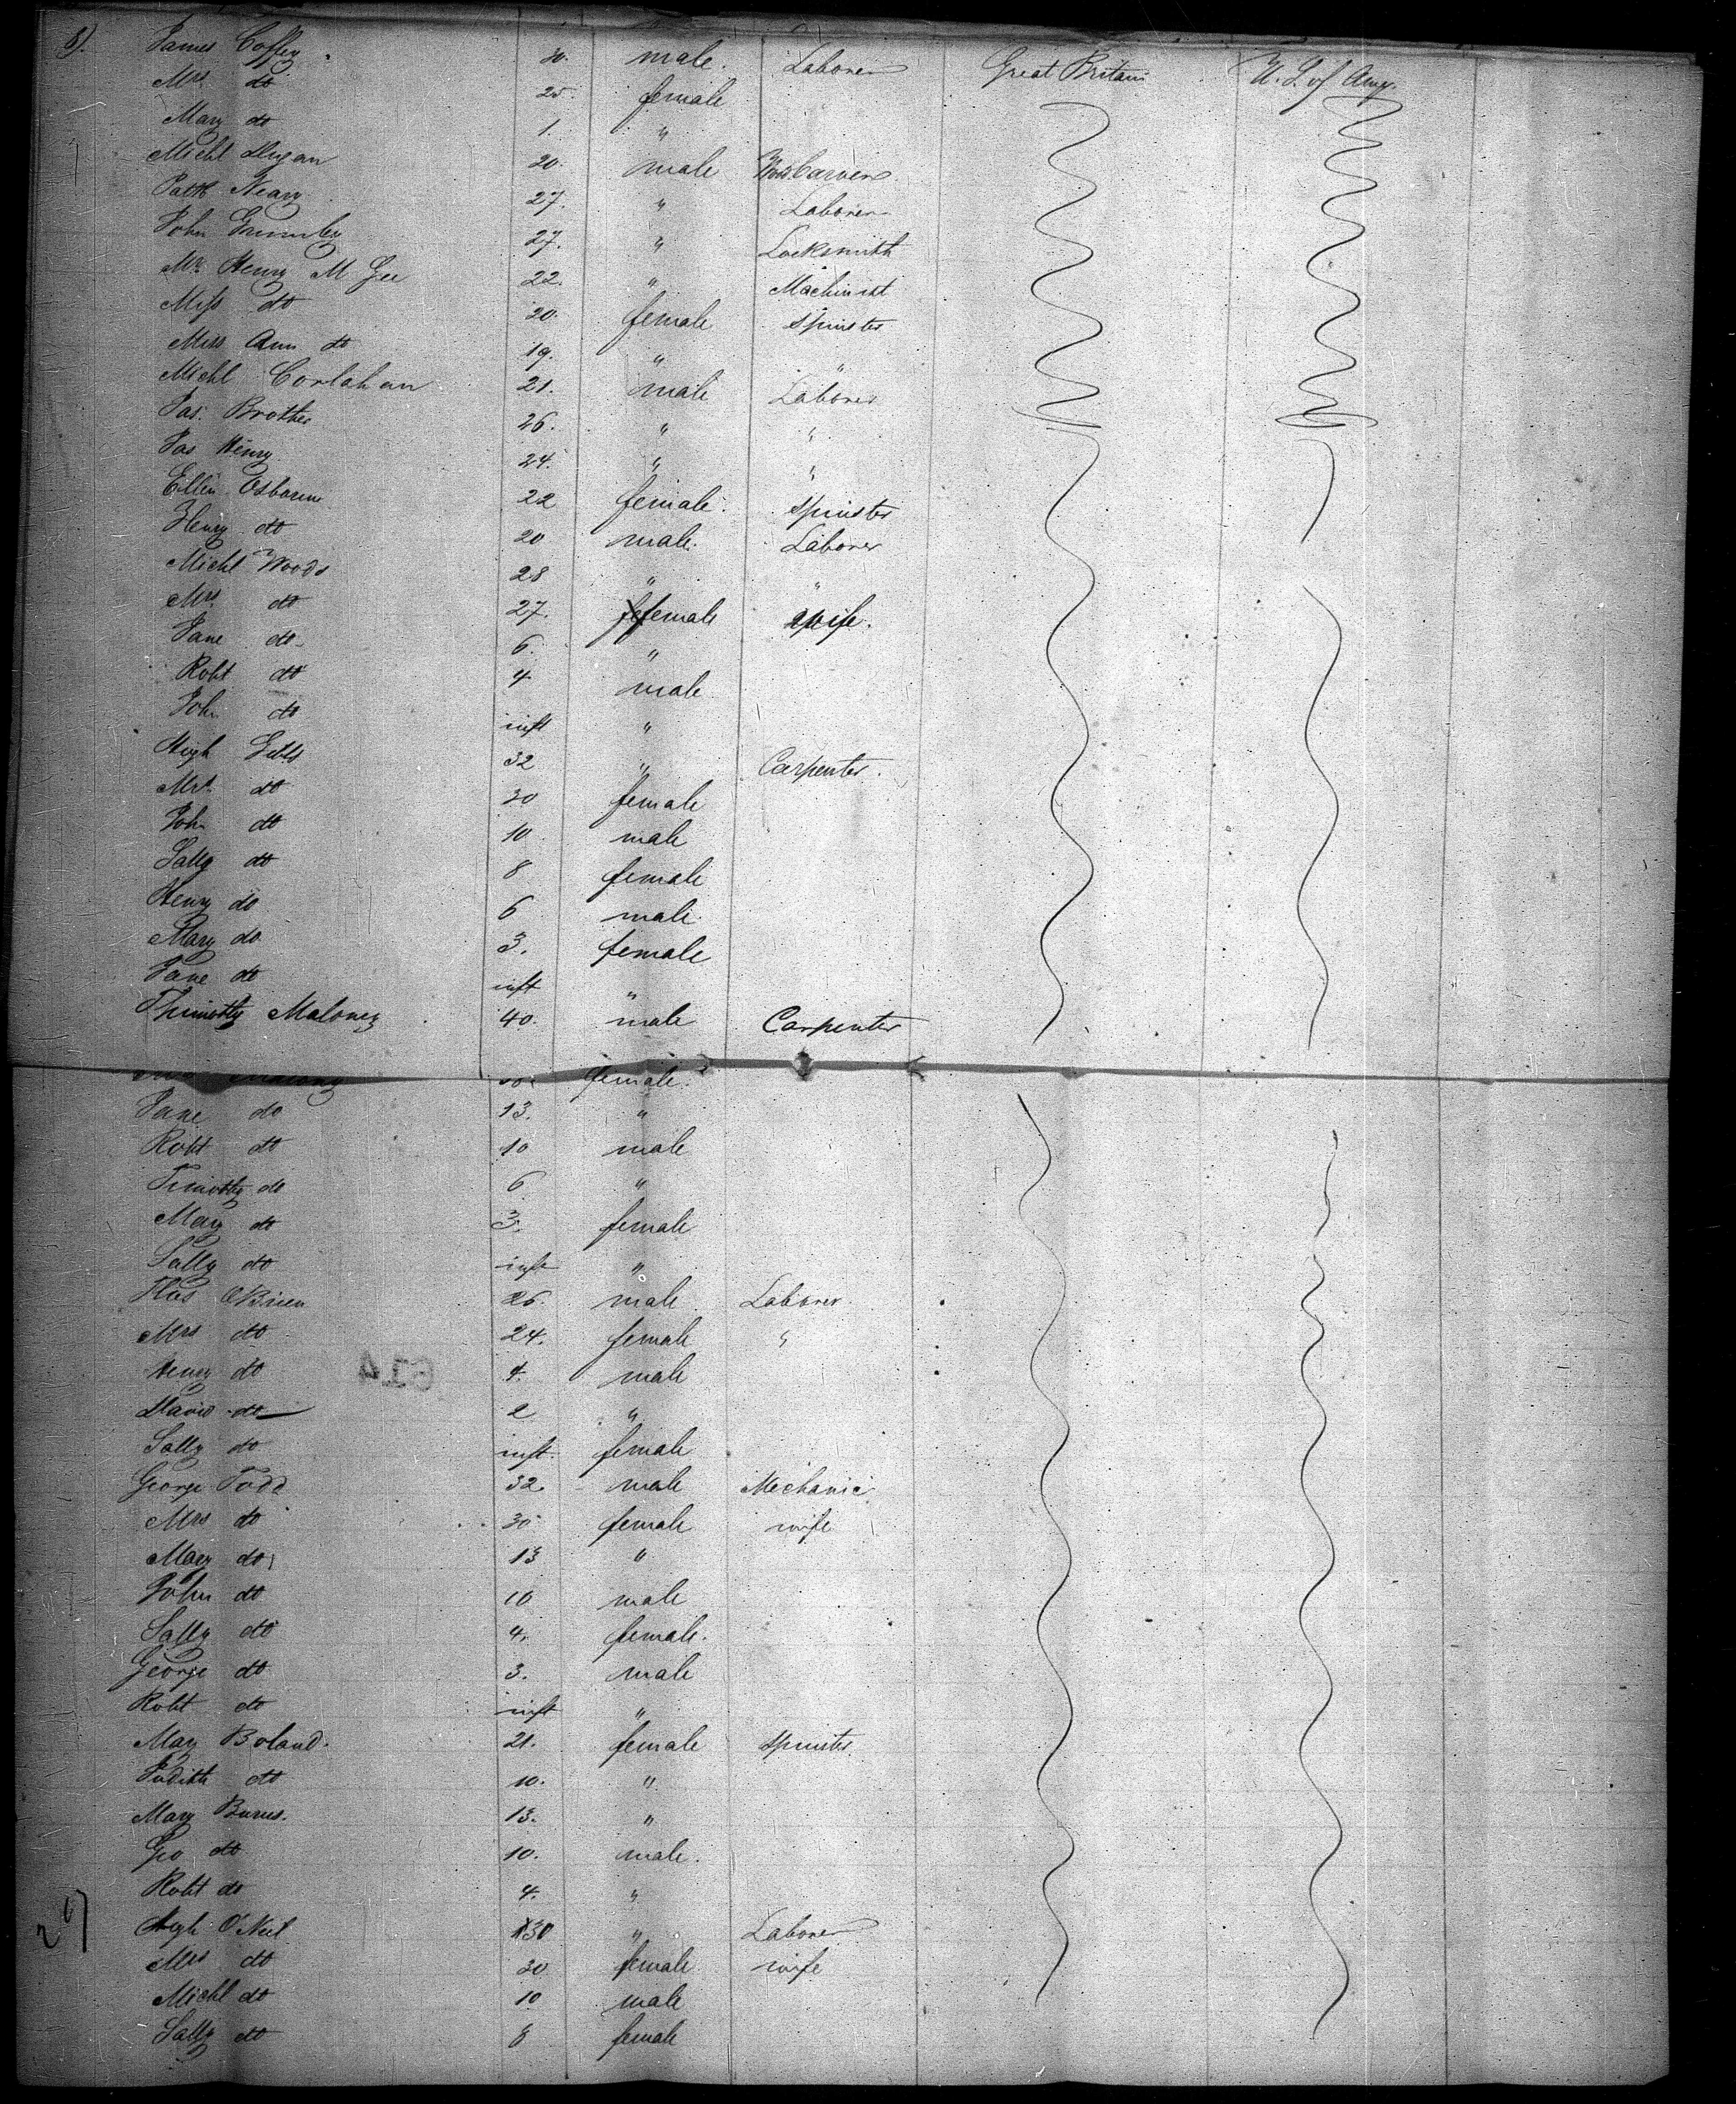 8). James Coffey 30. male. Laborer Great Britain U. S. of Amr.
Mrs do 25. female
Mary do 1. "
Michl Dugan 20. male Carver
Patk Neary 27. " Laborer
John 27. " Locksmith
Mr Henry M Gee 22. " Machinist
Miss do 20. female Spinster
Miss Ann do 19. " "
Michl 21. male Laborer
Jas. Brother 26. " "
Jas Henry 24. " "
Ellen Osborne 22 female. Spinster
Henry do 20 male. Laborer
Michl Woods 28 " "
Mrs. do 27. female wife.
Jane do 6. "
Robt do 4 male
John do inft "
Hugh Gibbs 32 " Carpenter.
Mrs. do 30 female
John do 10 male
Sally do 8 female
Henry do 6 male
Mary do 3. female
Jane do inft "
Thimothy Maloney 40. male Carpenter
Maloney female.
Jane do 13. "
Robt do 10 male
Timothy do 6 "
Mary do 3. female
Sally do inft "
Thos O'Brien 26. male Laborer
Mrs do 24. female "
Henry do 4. male
David do 2 "
Sally do inft. female
George Todd 32. male Mechanic
Mrs do 30 female wife
Mary do 13 "
John do 10 male
Sally do 4. female.
George do 3. male
Robt do inft "
Mary Boland. 21. female Spinster
Judith do 10. "
Mary Burns. 13. "
Geo do 10. male.
Robt do 4. "
Hugh O'Neil 30 " Laborer
Mrs do 30 female wife
Michl do 10 male
Sally do 8 female